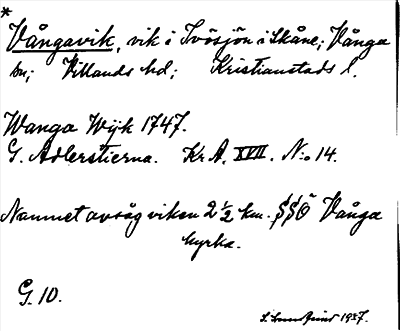 *
Vångavik, vik i Ivösjön i Skåne; Vånga
sn; Villands hd; Kristianstads l.
Wanga Wijk 1747.
G. Adlerstierna. Kr. A. XVII. N:o 14.
Namnet avsåg viken 2 1/2 km. SSÖ Vånga
kyrka.
G. 10.
1937.